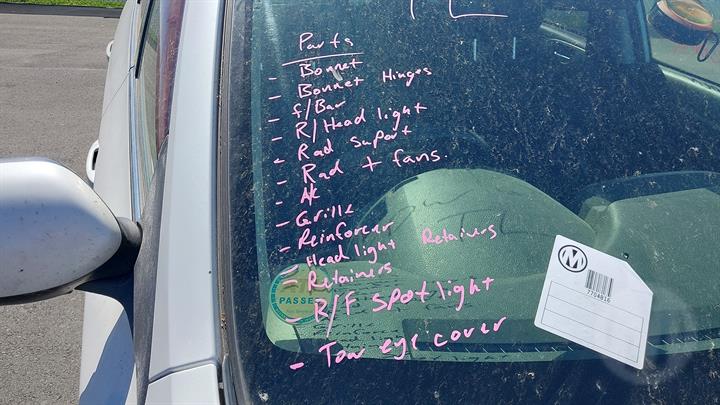 TL
Parts
- Bonnet
- Bonnet Hinges
- f/Bar
- R/Head light
- Rad Suport
- Rad + fans.
- A/c
- Grille
- Reinforcer
- Headlight Retainers
- Retainers
- R/F Spotlight
- Tow eye cover
PASSE
M
7704816